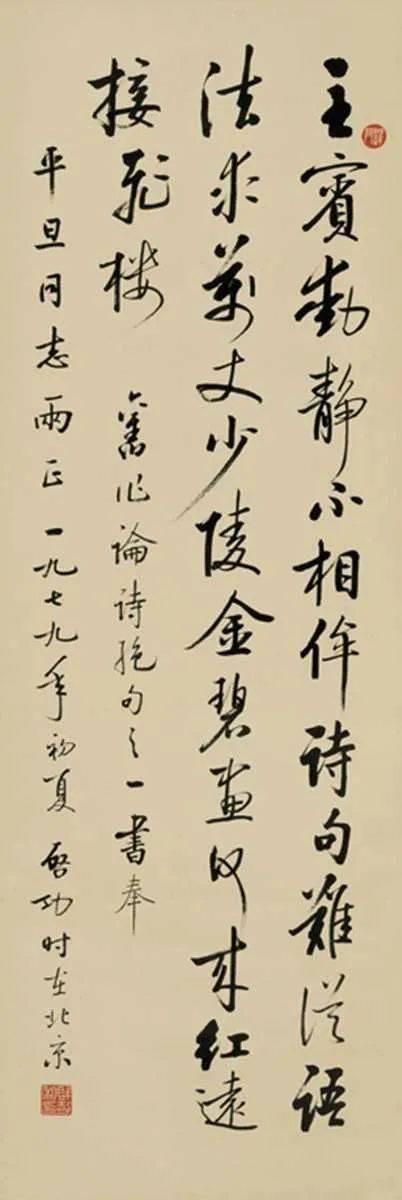 主賓動靜不相侔詩句難從語
法求萬丈少陵金碧畫紅遠
接飛樓
舊作論詩絶句之一書奉
平旦同志兩正一九七九年初夏啓功时在北京